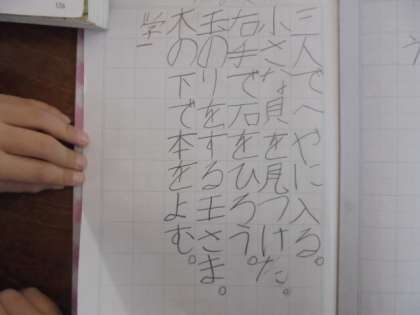 三人でへやに入る。
小さな貝を見つけた。
右手で石をひろう。
玉のりをする王さま。
木の下で本をよむ。
学